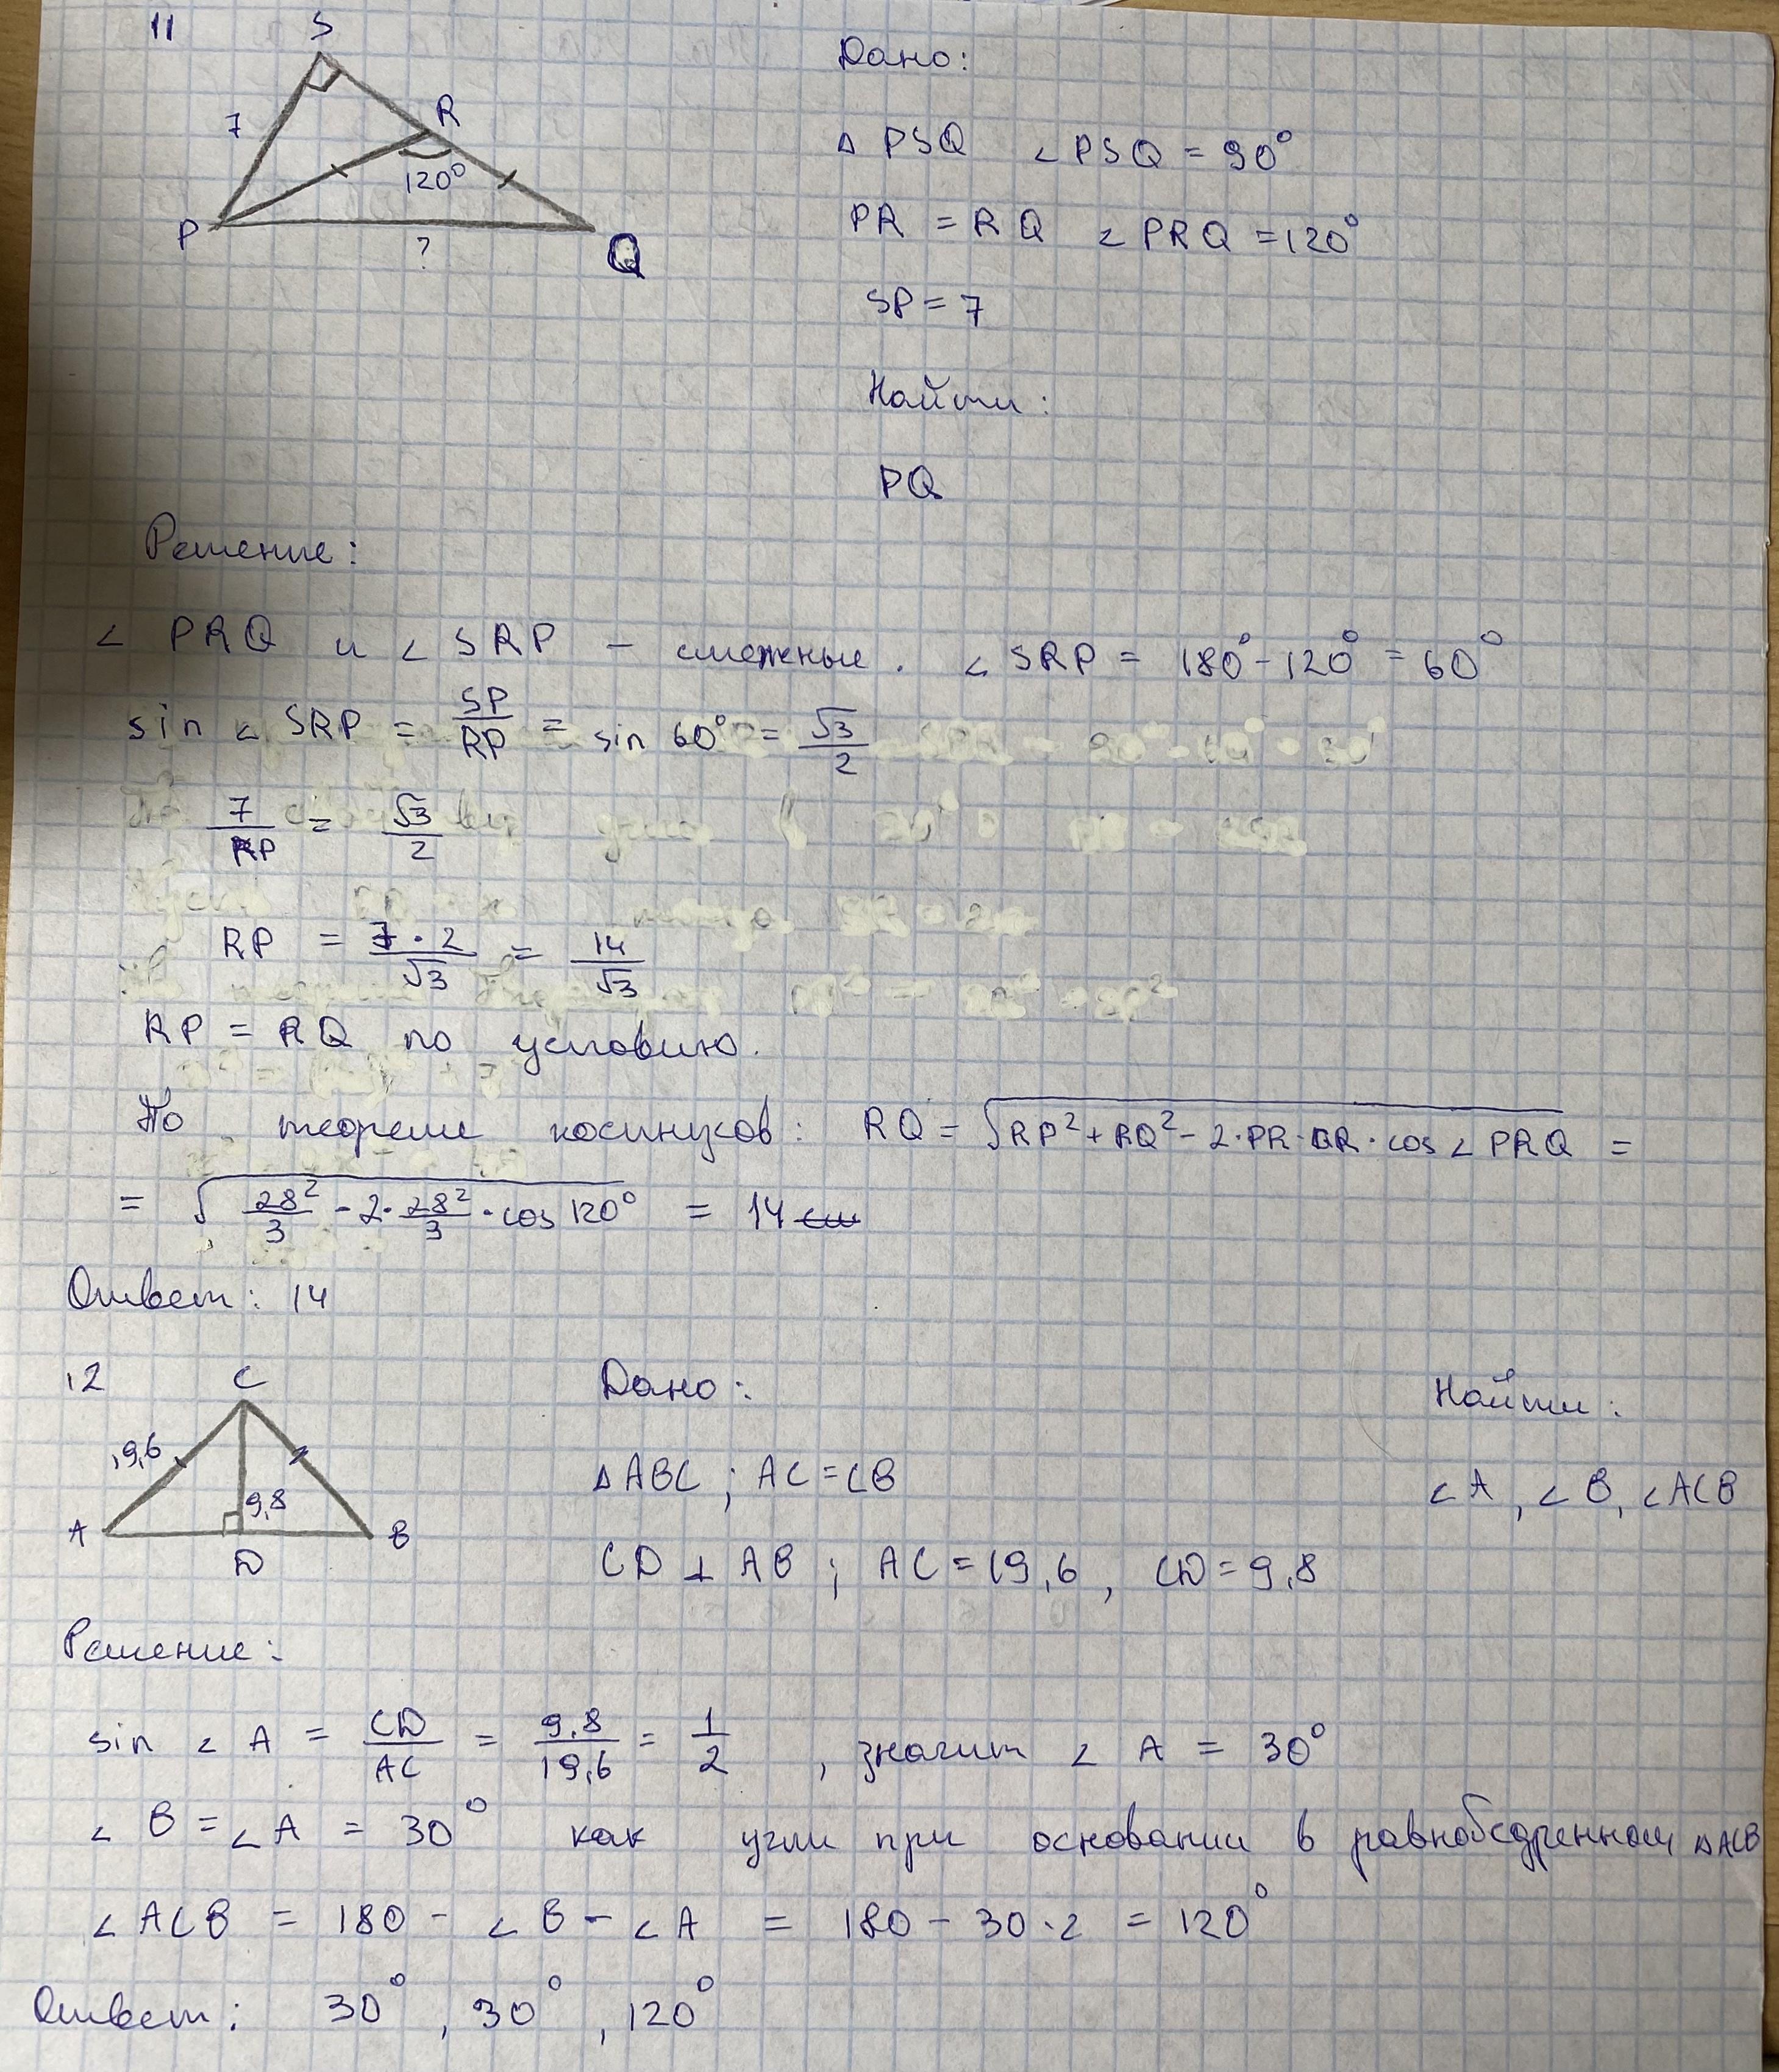 11
S
7
R
120°
P
?
Q
Дано:
△ PSQ ∠PSQ = 90°
PR = RQ ∠PRQ = 120°
SP = 7
Найти:
PQ
Решение:
∠ PRQ и ∠ SRP – смежные. ∠ SRP = 180° - 120° = 60°
sin ∠ SRP = SP/RP = sin 60° = √3/2
7/RP = √3/2
RP = 7·2/√3 = 14/√3
RP = RQ по условию.
По теореме косинусов: RQ = √(RP² + RQ² - 2·PR·QR·cos ∠ PRQ) =
= √(28²/3 - 2·28²/3·cos 120°) = 14
Ответ: 14
12
C
19,6
9,8
A
D
B
Дано:
△ABC ; AC = CB
CD ⊥ AB ; AC = 19,6 , CD = 9,8
Найти:
∠A , ∠B, ∠ACB
Решение:
sin ∠ A = CD/AC = 9,8/19,6 = 1/2 , значит ∠ A = 30°
∠ B = ∠ A = 30° как углы при основании в равнобедренном △ACB
∠ACB = 180 - ∠B - ∠A = 180 - 30·2 = 120°
Ответ: 30°, 30°, 120°